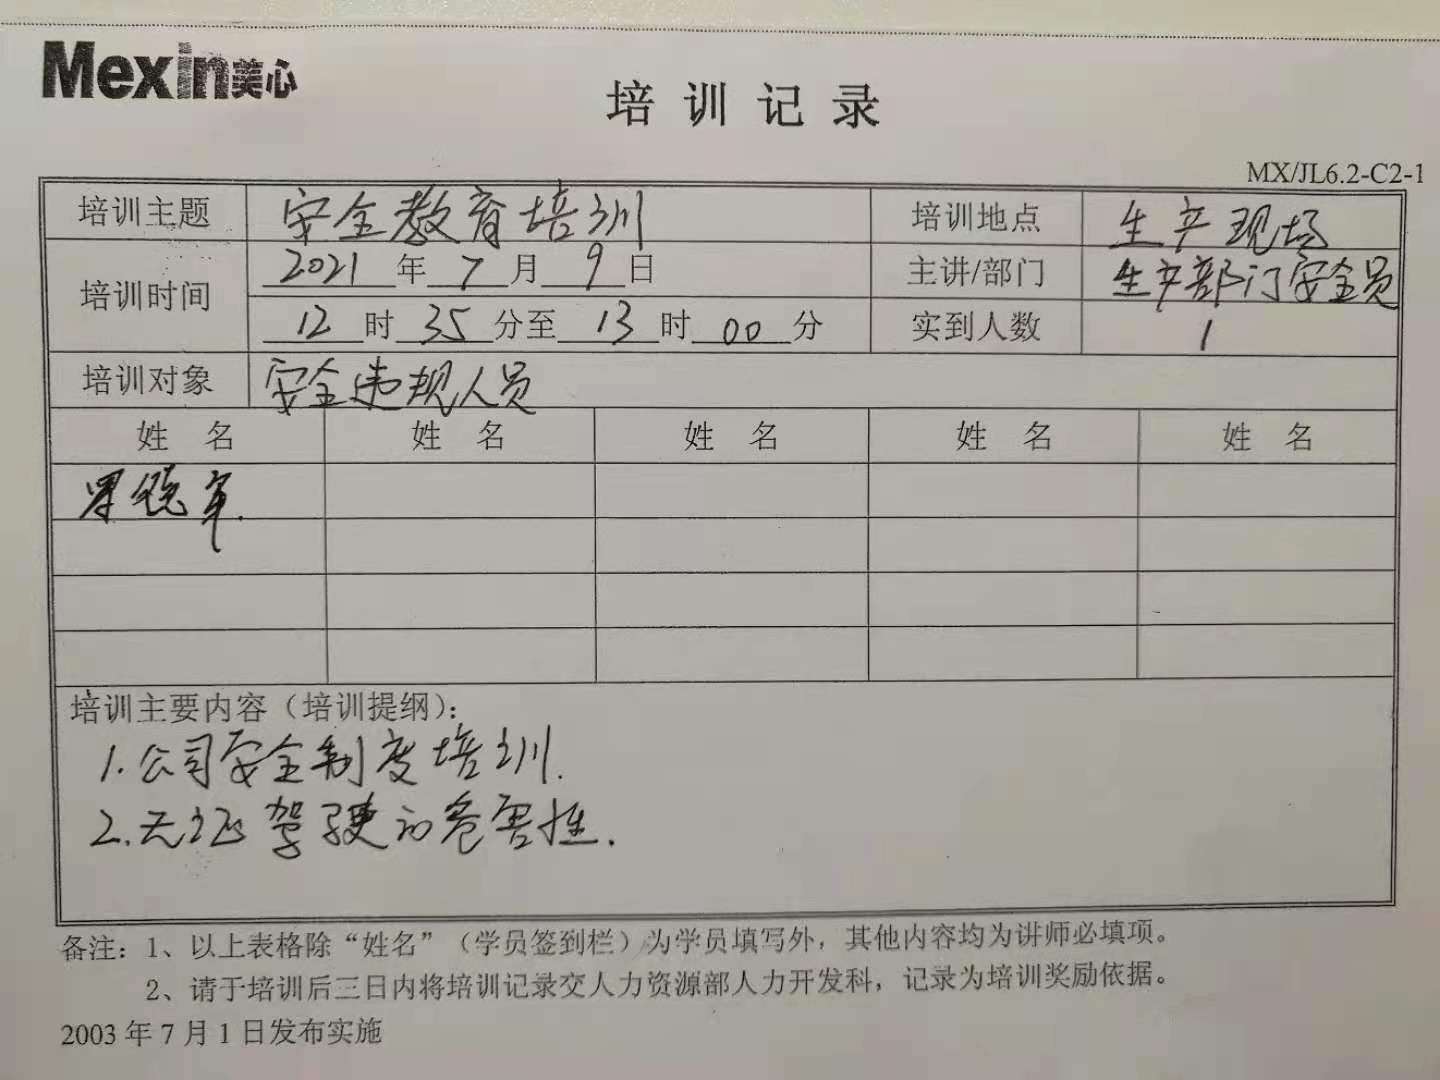 Mexin美心
培训记录
MX/JL6.2-C2-1
培训主题 安全教育培训 培训地点 生产现场
培训时间 2021年7月9日 主讲/部门 生产部门安全员
12时35分至13时00分 实到人数 1
培训对象 安全违规人员
姓 名 姓 名 姓 名 姓 名 姓 名
军
培训主要内容（培训提纲）：
1.公司安全制度培训.
2.无证驾驶的危害性.
备注：1、以上表格除“姓名”（学员签到栏）为学员填写外，其他内容均为讲师必填项。
2、请于培训后三日内将培训记录交人力资源部人力开发科，记录为培训奖励依据。
2003年7月1日发布实施